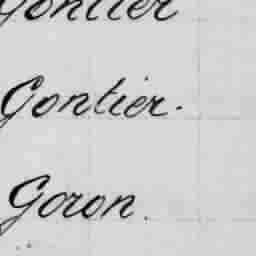 Gontier
Gontier.
Goron.